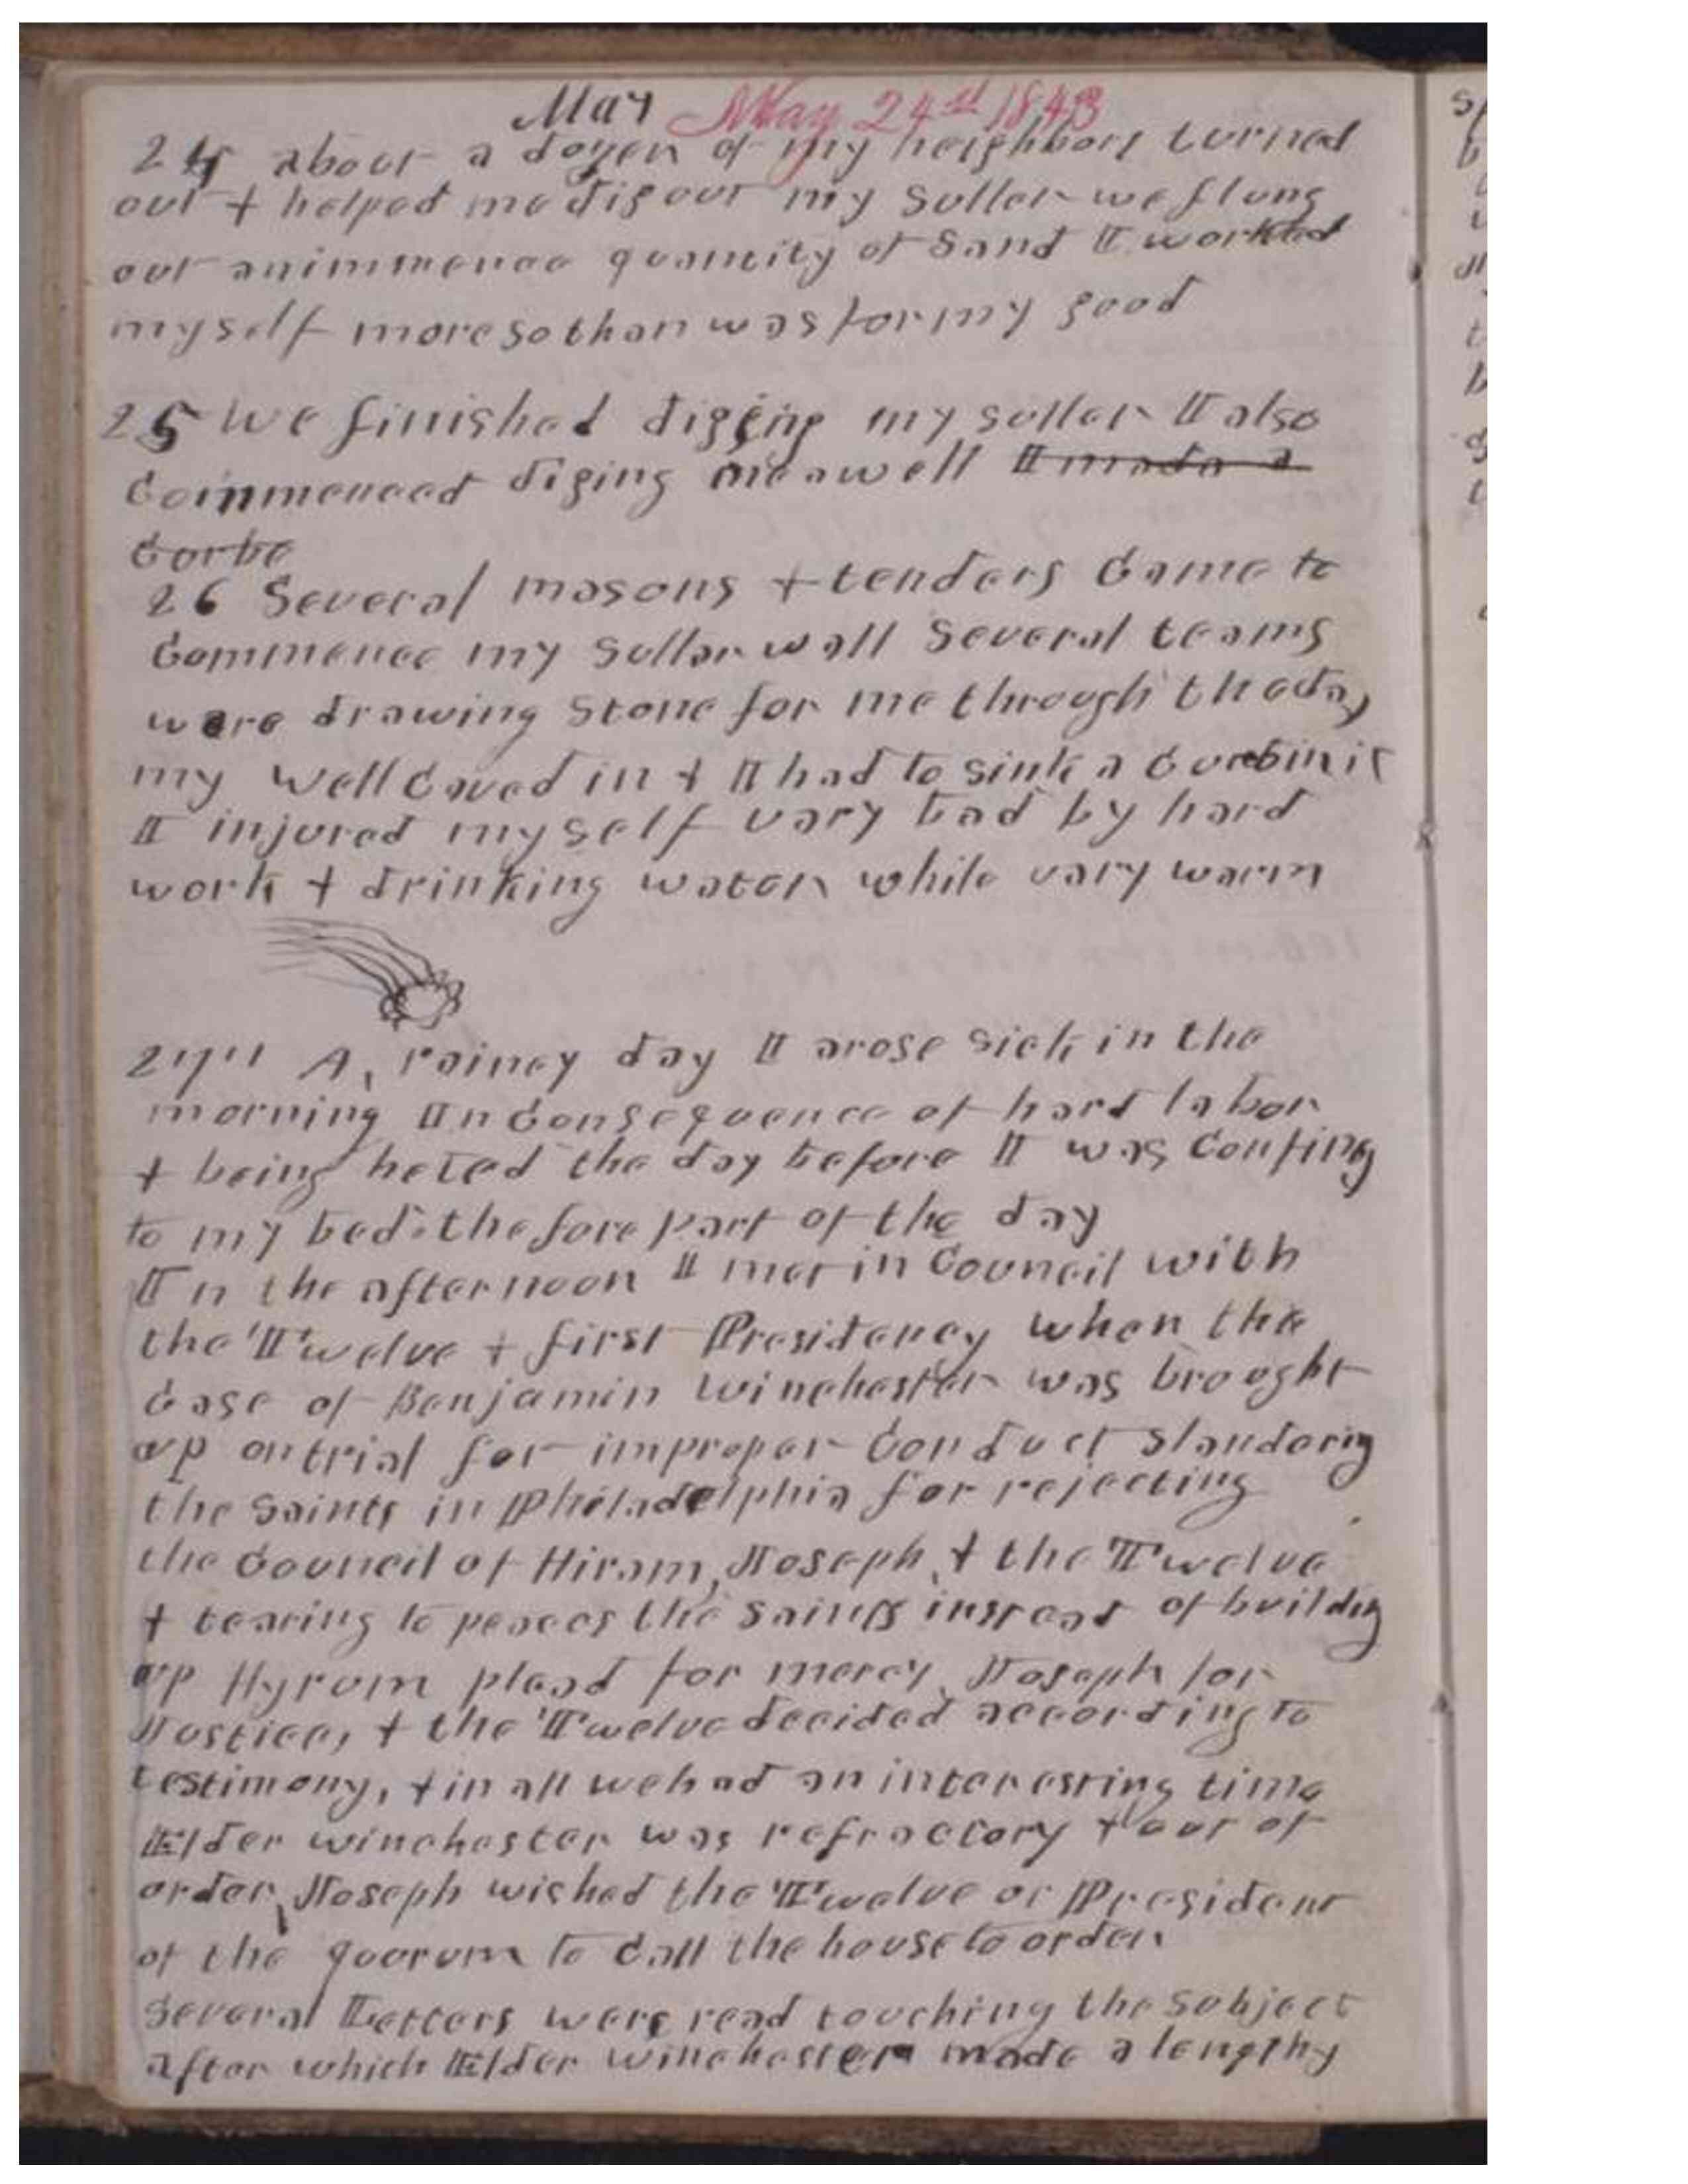 May May 24st 1843
24 about a dozen of my neighbors turned
out + helped me dig out my Sullar we flung
out an immence quantity of Sand I worked
myself more so than was for my good
25 We finished diging my sullar I also
Commenced diging me a well I made a
Corbe
26 Several masons + tenders Came to
Commence my Sullar wall Several teams
were drawing Stone for me through the day
my well Caved in + I had to sink a Curb in it
I injured myself vary bad by hard
work + drinking water while vary warm
27" A, rainey day I arose sick in the
morning In Consequence of hard labor
+ being heted the day before I was Confing
to my bed the fore part of the day
In the afternoon I met in Council with
the Twelve + first Presidency when the
Case of Benjamin Winchester was brought
up on trial for improper Conduct Slandering
the Saints in Philadelphia for rejecting
the Council of Hiram, Joseph, + the Twelve
+ tearing to peaces the Saints instead of building
up Hyrum plead for mercy, Joseph for
Justice, + the Twelve decided according to
testimony, + in all we had an interesting time
Elder winchester was refractory + out of
order, Joseph wished the Twelve or President
of the quorum to Call the house to order
Several Letters were read touching the Subject
after which Elder Winchester made a lengthy